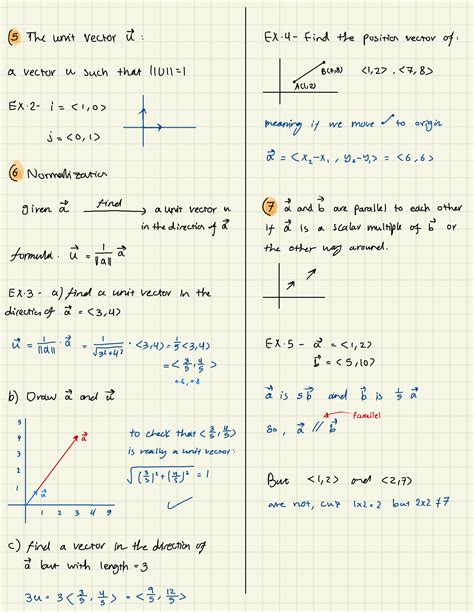 5 The unit vector u⃗ :
a vector u such that ||U||=1
EX.2- i = <1,0>
j = <0,1>
6 Normalization
given a⃗ find → a unit vector u
in the direction of a⃗
formula. u⃗ = 1/||a|| a⃗
EX.3 - a) find a unit vector in the
direction of a⃗ = <3,4>
u⃗ = 1/||a⃗|| · a⃗ = 1/√(3²+4²) · <3,4> = 1/5 <3,4>
= <3/5, 4/5>
0.6, 0.8
b) Draw a⃗ and u⃗
5
4
3
2
1
a⃗
u⃗
1 2 3 4 5
to check that <3/5, 4/5>
is really a unit vector:
√((3/5)² + (4/5)²) = 1
c) find a vector in the direction of
a⃗ but with length = 3
3u = 3<3/5, 4/5> = <9/5, 12/5>
EX.4 - Find the position vector of.
B(7,8)
A(1,2)
<1,2> , <7,8>
meaning if we move to origin
a⃗ = <x₂-x₁ , y₂-y₁> = <6,6>
7 a⃗ and b⃗ are parallel to each other
if a⃗ is a scalar multiple of b⃗ or
the other way around.
EX.5 - a⃗ = <1,2>
b⃗ = <5,10>
a⃗ is 5b⃗ and b⃗ is 1/5 a⃗
Parallel
so, a⃗ // b⃗
But <1,2> and <2,7>
are not, cuz 1x2=2 but 2x2≠7